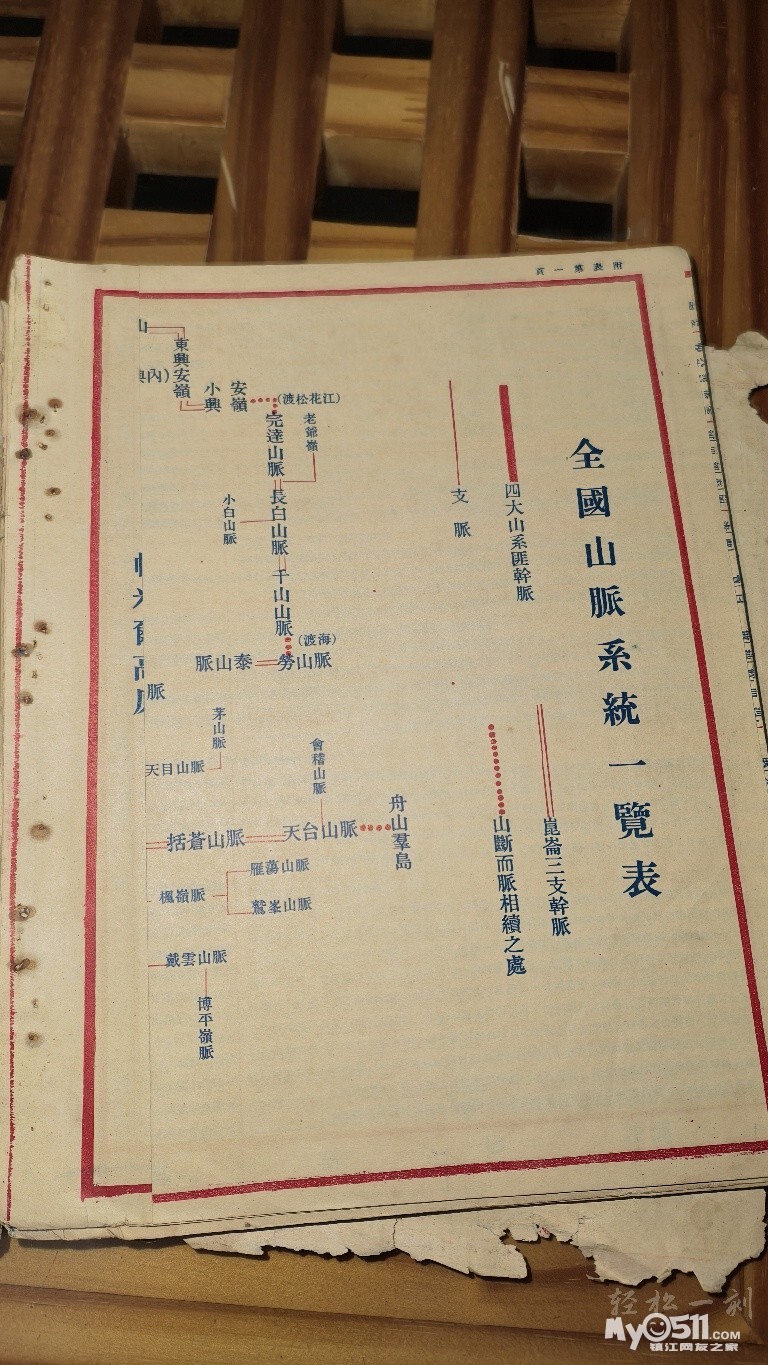 附表第一頁
全國山脈系統一覽表
四大山系匪幹脈
支脈
崑崙三支幹脈
山斷而脈相續之處
山
東興安嶺
(內
小興
安嶺
(渡松花江)
完達山脈
老爺嶺
長白山脈
小白山脈
千山山脈
(渡海)
勞山脈
泰山脈
脈
茅山脈
天目山脈
會稽山脈
舟山羣島
天台山脈
括蒼山脈
雁蕩山脈
楓嶺脈
鷲峯山脈
戴雲山脈
博平嶺脈
轻松一刻
My0511.COM
镇江网友之家